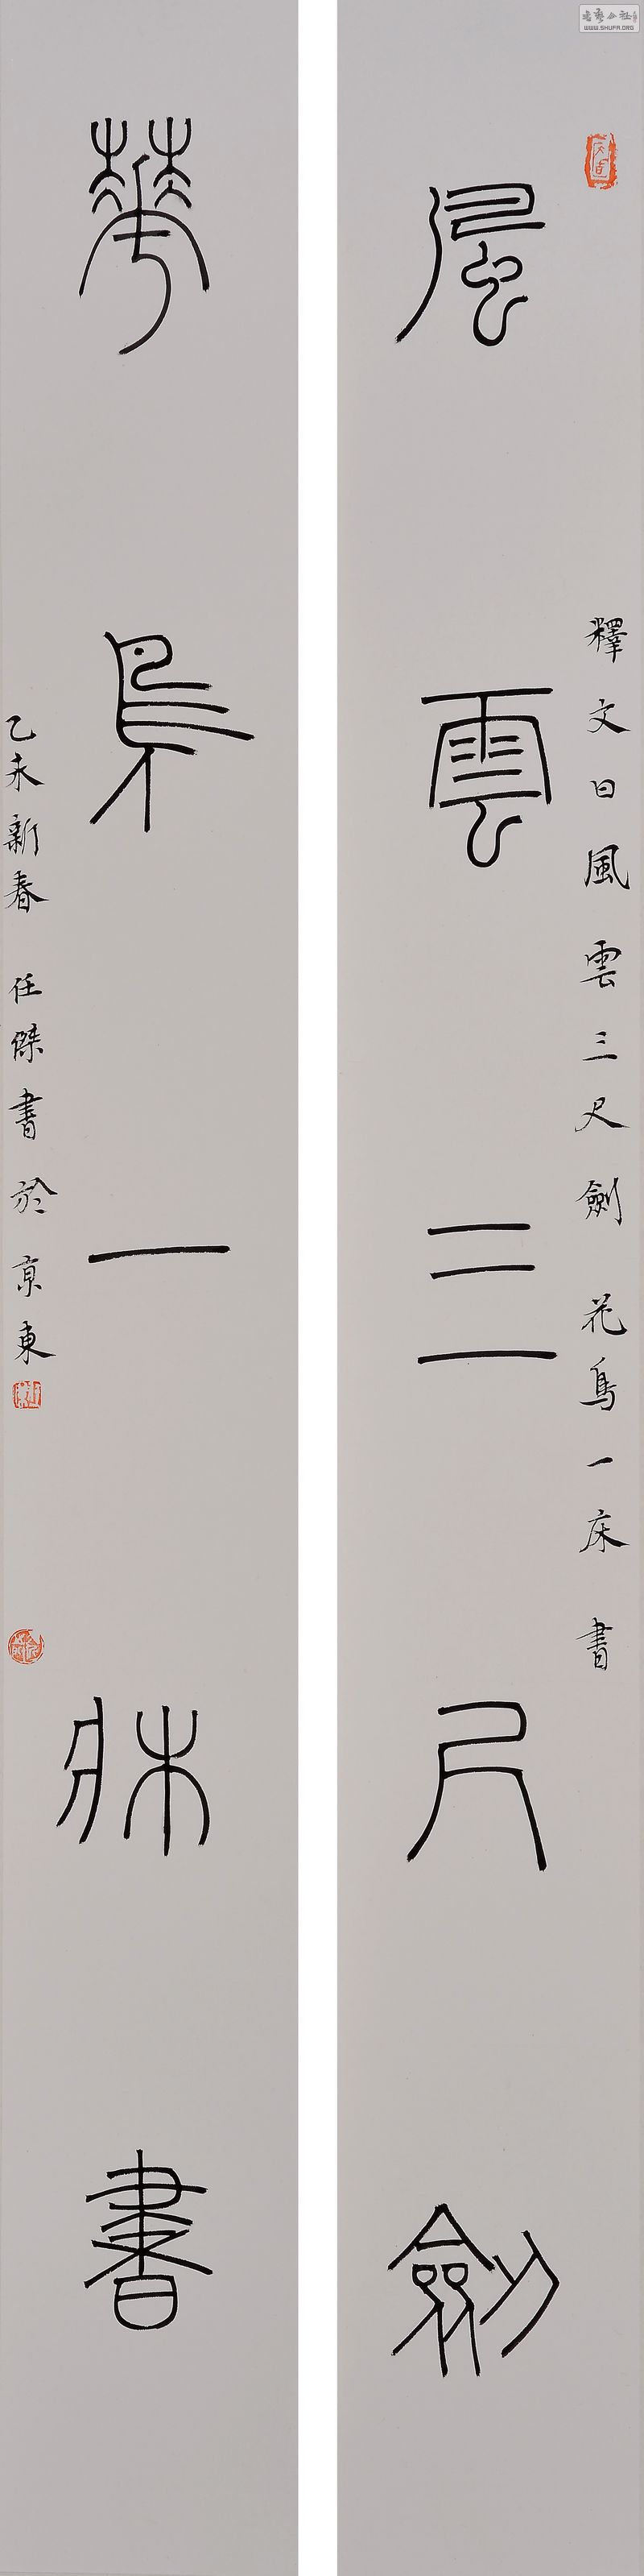 風雲三尺劍
釋文曰風雲三尺劍 花鳥一床書
華鳥一牀書
乙未新春 任傑書於京東
WWW.SHUFA.ORG